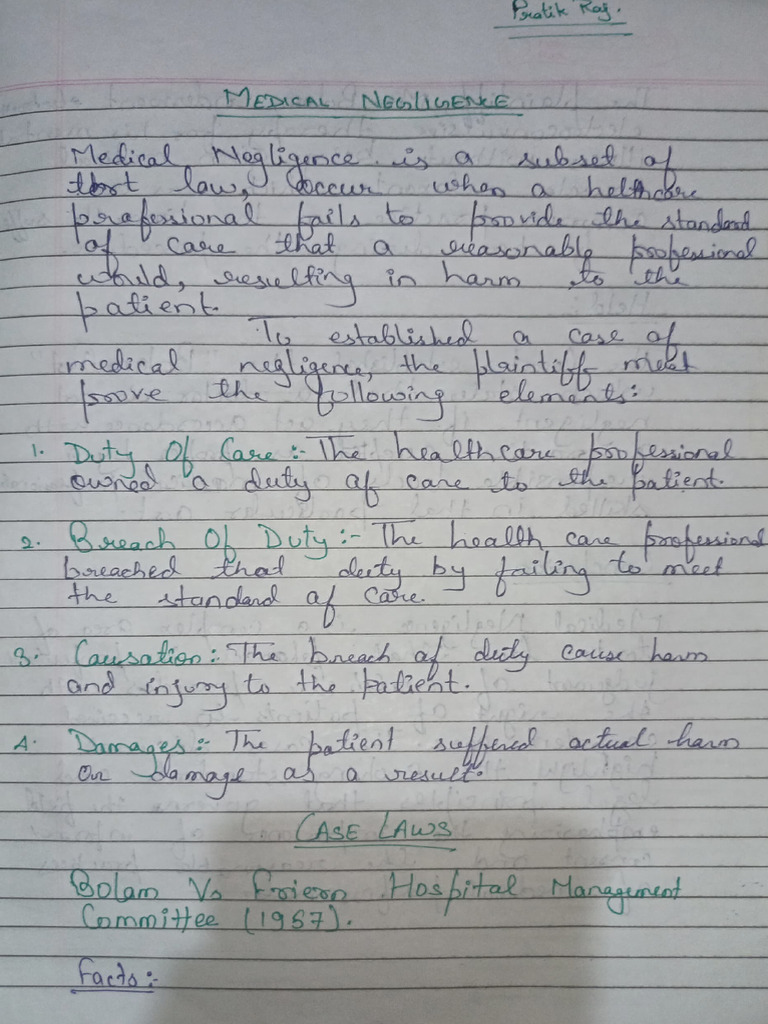 Pratik Raj.
MEDICAL NEGLIGENCE
Medical Negligence is a subset of
tort law, occur when a helthcare
professional fails to provide the standard
of care that a reasonable professional
would, resulting in harm to the
patient.
To established a case of
medical negligence, the plaintiff must
prove the following elements:
1. Duty Of Care :- The healthcare professional
owned a duty of care to the patient.
2. Breach Of Duty :- The health care professional
breached that duty by failing to meet
the standard of care.
3. Causation :- The breach of duty cause harm
and injury to the patient.
4. Damages :- The patient suffered actual harm
or damage as a result.
CASE LAWS
Bolam Vs Friern Hospital Management
Committee (1957).
Facts :-